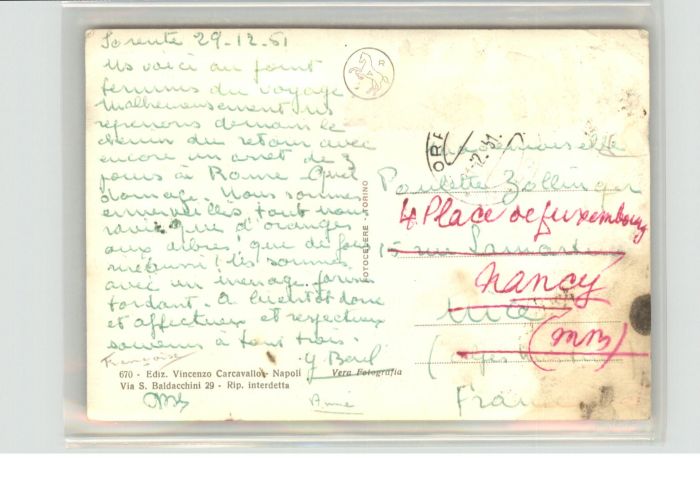 Sorente 29-12-51
Ns voici au point
terminus du voyage
Malheureusement ns
reprenons demain le
chemin du retour avec
encore un arret de 3
jours à Rome. Quel
dommage. Nous sommes
emerveillés tout nous
ravie que d'oranges
aux arbres! que de fois
Ns sommes
avec un menage
tordant. A bientot donc
et affectueux et respectueux
souvenirs à tous trois.
Françoise
670 - Ediz. Vincenzo Carcavallo - Napoli
Via S. Baldacchini 29 - Rip. interdetta
Vera Fotografia
Anne
FOTOCELERE - TORINO
Mademoiselle
Paulette Zollinger
4 Place de Luxembourg
15 rue Lamartine
Nancy
Nice
(MM)
France